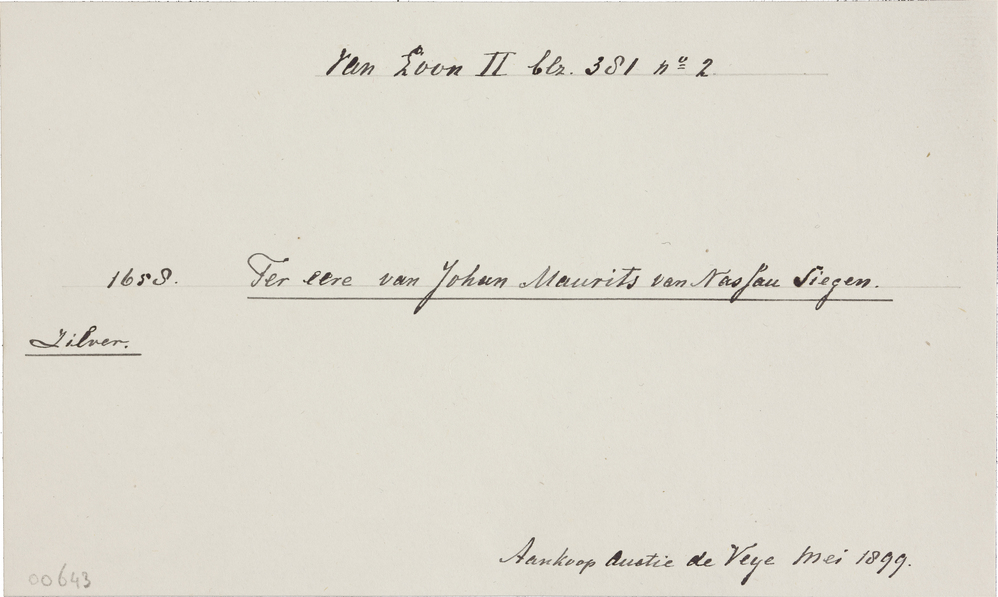 Van Loon II blz. 381 no 2
1658. Ter eere van Johan Maurits van Nassau Siegen.
Zilver.
Aankoop Auctie de Veye Mei 1899.
00643